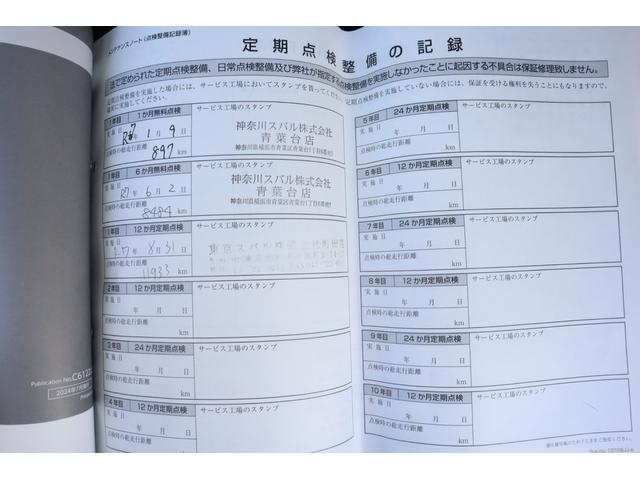 メンテナンスノート(点検整備記録簿)
定期点検整備の記録
法で定められた定期点検整備、日常点検整備及び弊社が指定する点検整備を実施しなかったことに起因する不具合は保証修理致しません。
定期点検整備を実施した場合には、サービス工場においてスタンプを貰ってください。
定期点検整備を実施していない場合には、保証を受ける権利を失うことにもなりますので、
確実に実施してください。
1年目 1か月無料点検
サービス工場のスタンプ
実施日 R7年 1月 9日
点検時の総走行距離
897 km
神奈川スバル株式会社
青葉台店
1年目 6か月無料点検
サービス工場のスタンプ
実施日 R7年 6月 2日
点検時の総走行距離
8484 km
神奈川スバル株式会社
青葉台店
1年目 12か月定期点検
サービス工場のスタンプ
年 8月 31日
点検時の総走行距離
11933 km
2年目 24か月定期点検
サービス工場のスタンプ
実施日 年 月 日
点検時の総走行距離
km
3年目 24か月定期点検
サービス工場のスタンプ
実施日 年 月 日
点検時の総走行距離
km
4年目 12か月定期点検
サービス工場のスタンプ
実施日 年 月 日
点検時の総走行距離
km
5年目 24か月定期点検
サービス工場のスタンプ
実施日 年 月 日
点検時の総走行距離
km
6年目 12か月定期点検
サービス工場のスタンプ
実施日 年 月 日
点検時の総走行距離
km
7年目 24か月定期点検
サービス工場のスタンプ
実施日 年 月 日
点検時の総走行距離
km
8年目 12か月定期点検
サービス工場のスタンプ
実施日 年 月 日
点検時の総走行距離
km
9年目 24か月定期点検
サービス工場のスタンプ
実施日 年 月 日
点検時の総走行距離
km
10年目 12か月定期点検
サービス工場のスタンプ
実施日 年 月 日
点検時の総走行距離
km
Publication No.
2024年7月